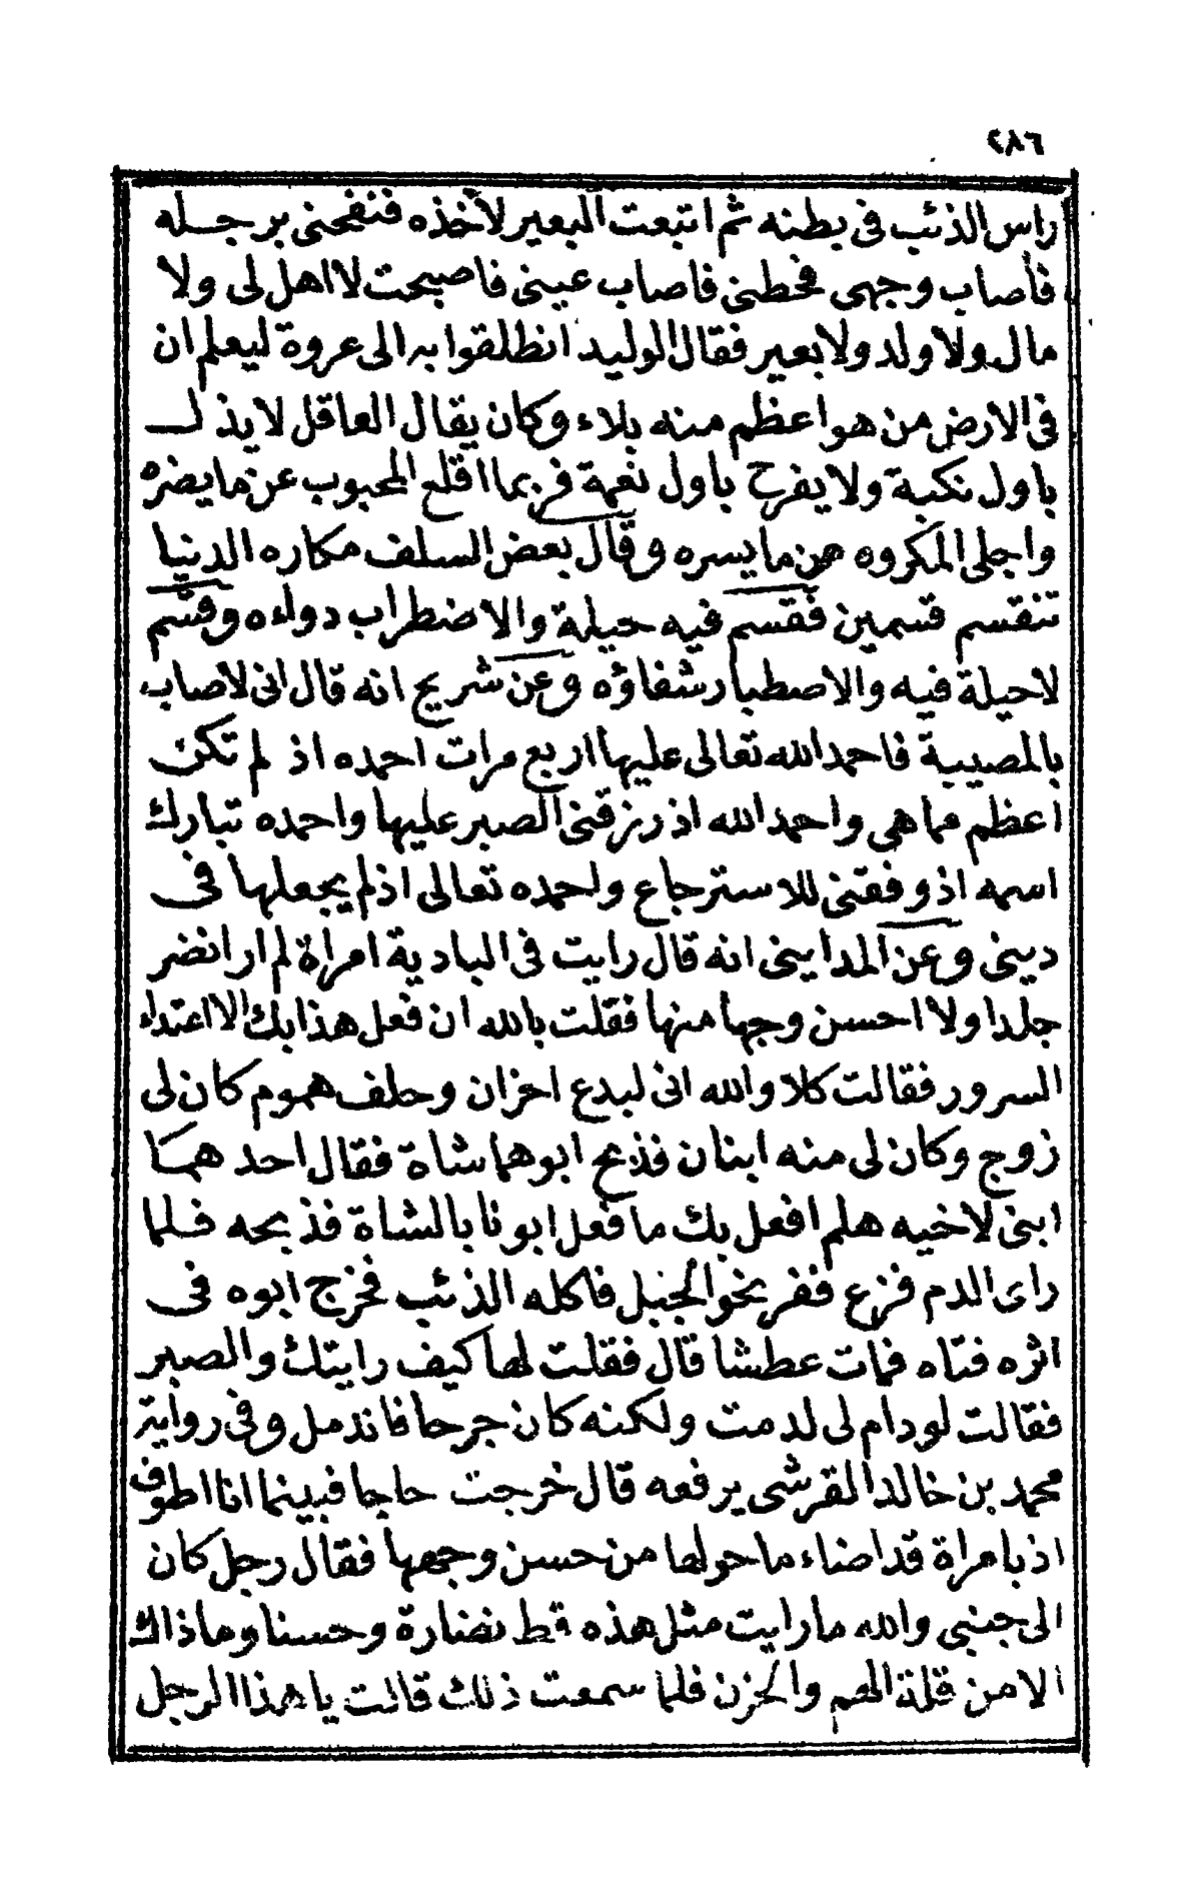 ٢٨٦
راس الذئب فى بطنه ثم اتبعت البعير لأخذه فنفحنى برجله
فأصاب وجهى فحطنى فاصاب عينى فاصبحت لا اهل لى ولا
مال ولا ولد ولا بعير فقال الوليد انطلقوا به الى عروة ليعلم ان
فى الارض من هو اعظم منه بلاء وكان يقال العاقل لا يذل
باول نكبة ولا يفرح باول نعمة فربما اقلع المحبوب عن ما يضره
واجلى المكروه عن ما يسره وقال بعض السلف مكاره الدنيا
تنقسم قسمين فقسم فيه حيلة والاضطراب دواءه وقسم
لا حيلة فيه والاصطبار شفاؤه وعن شريح انه قال انى لاصاب
بالمصيبة فاحمد الله تعالى عليها اربع مرات احمده اذ لم تكن
اعظم مما هى واحمد الله اذ رزقنى الصبر عليها واحمده تبارك
اسمه اذ وفقنى للاسترجاع واحمده تعالى اذ لم يجعلها فى
دينى وعن المداينى انه قال رايت فى البادية امراة لم ار انضر
جلدا ولا احسن وجها منها فقلت بالله ان فعل هذا بك الا اعتداء
السرور فقالت كلا والله انى لبدع احزان وحلف هموم كان لى
زوج وكان لى منه ابنان فذبح ابوهما شاة فقال احد هما
ابنى لاخيه هلم افعل بك ما فعل ابونا بالشاة فذبحه فلما
راى الدم فزع ففر نحو الجبل فاكله الذئب فخرج ابوه فى
اثره فتاه فمات عطشا قال فقلت لها كيف رايتك والصبر
فقالت لو دام لى لدمت ولكنه كان جرحا فاندمل وفى رواية
محمد بن خالد القرشى يرفعه قال خرجت حاجا فبينما انا اطوف
اذ بامراة قد اضاء ما حولها من حسن وجهها فقال رجل كان
الى جنبى والله ما رايت مثل هذه قط نضارة وحسنا وما ذاك
الا من قلة الهم والحزن فلما سمعت ذلك قالت يا هذا الرجل